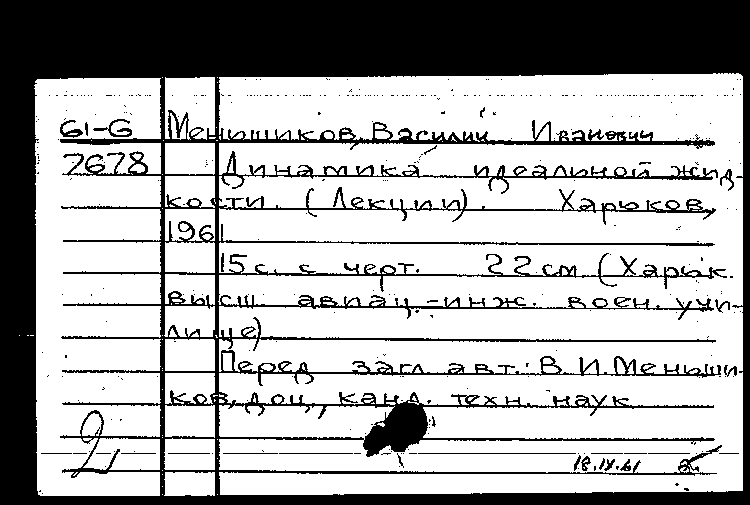 61-6 Меньшиков, Василий Иванович
7678 Динамика идеальной жид-
кости. (Лекции). Харьков,
1961
15 с. с черт. 22 см (Харьк.
высш. авиац.-инж. воен. учи-
лище)
Перед загл. авт.: В. И. Меньши-
ков, доц., канд. техн. наук
2 18.IX.61